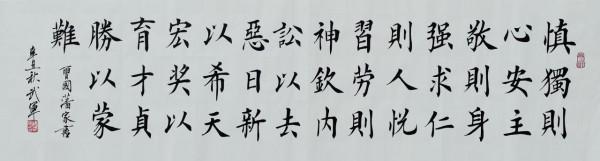 慎獨則
心安主
敬則身
强求仁
則人悅
習勞則
神欽内
訟以去
惡日新
以希天
宏奖以
育才貞
勝以蒙
難
曾國藩家書
辛丑秋武軍